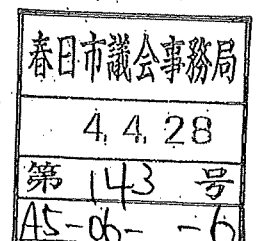 春日市議会事務局
4.4.28
第 143 号
A5-06- -6